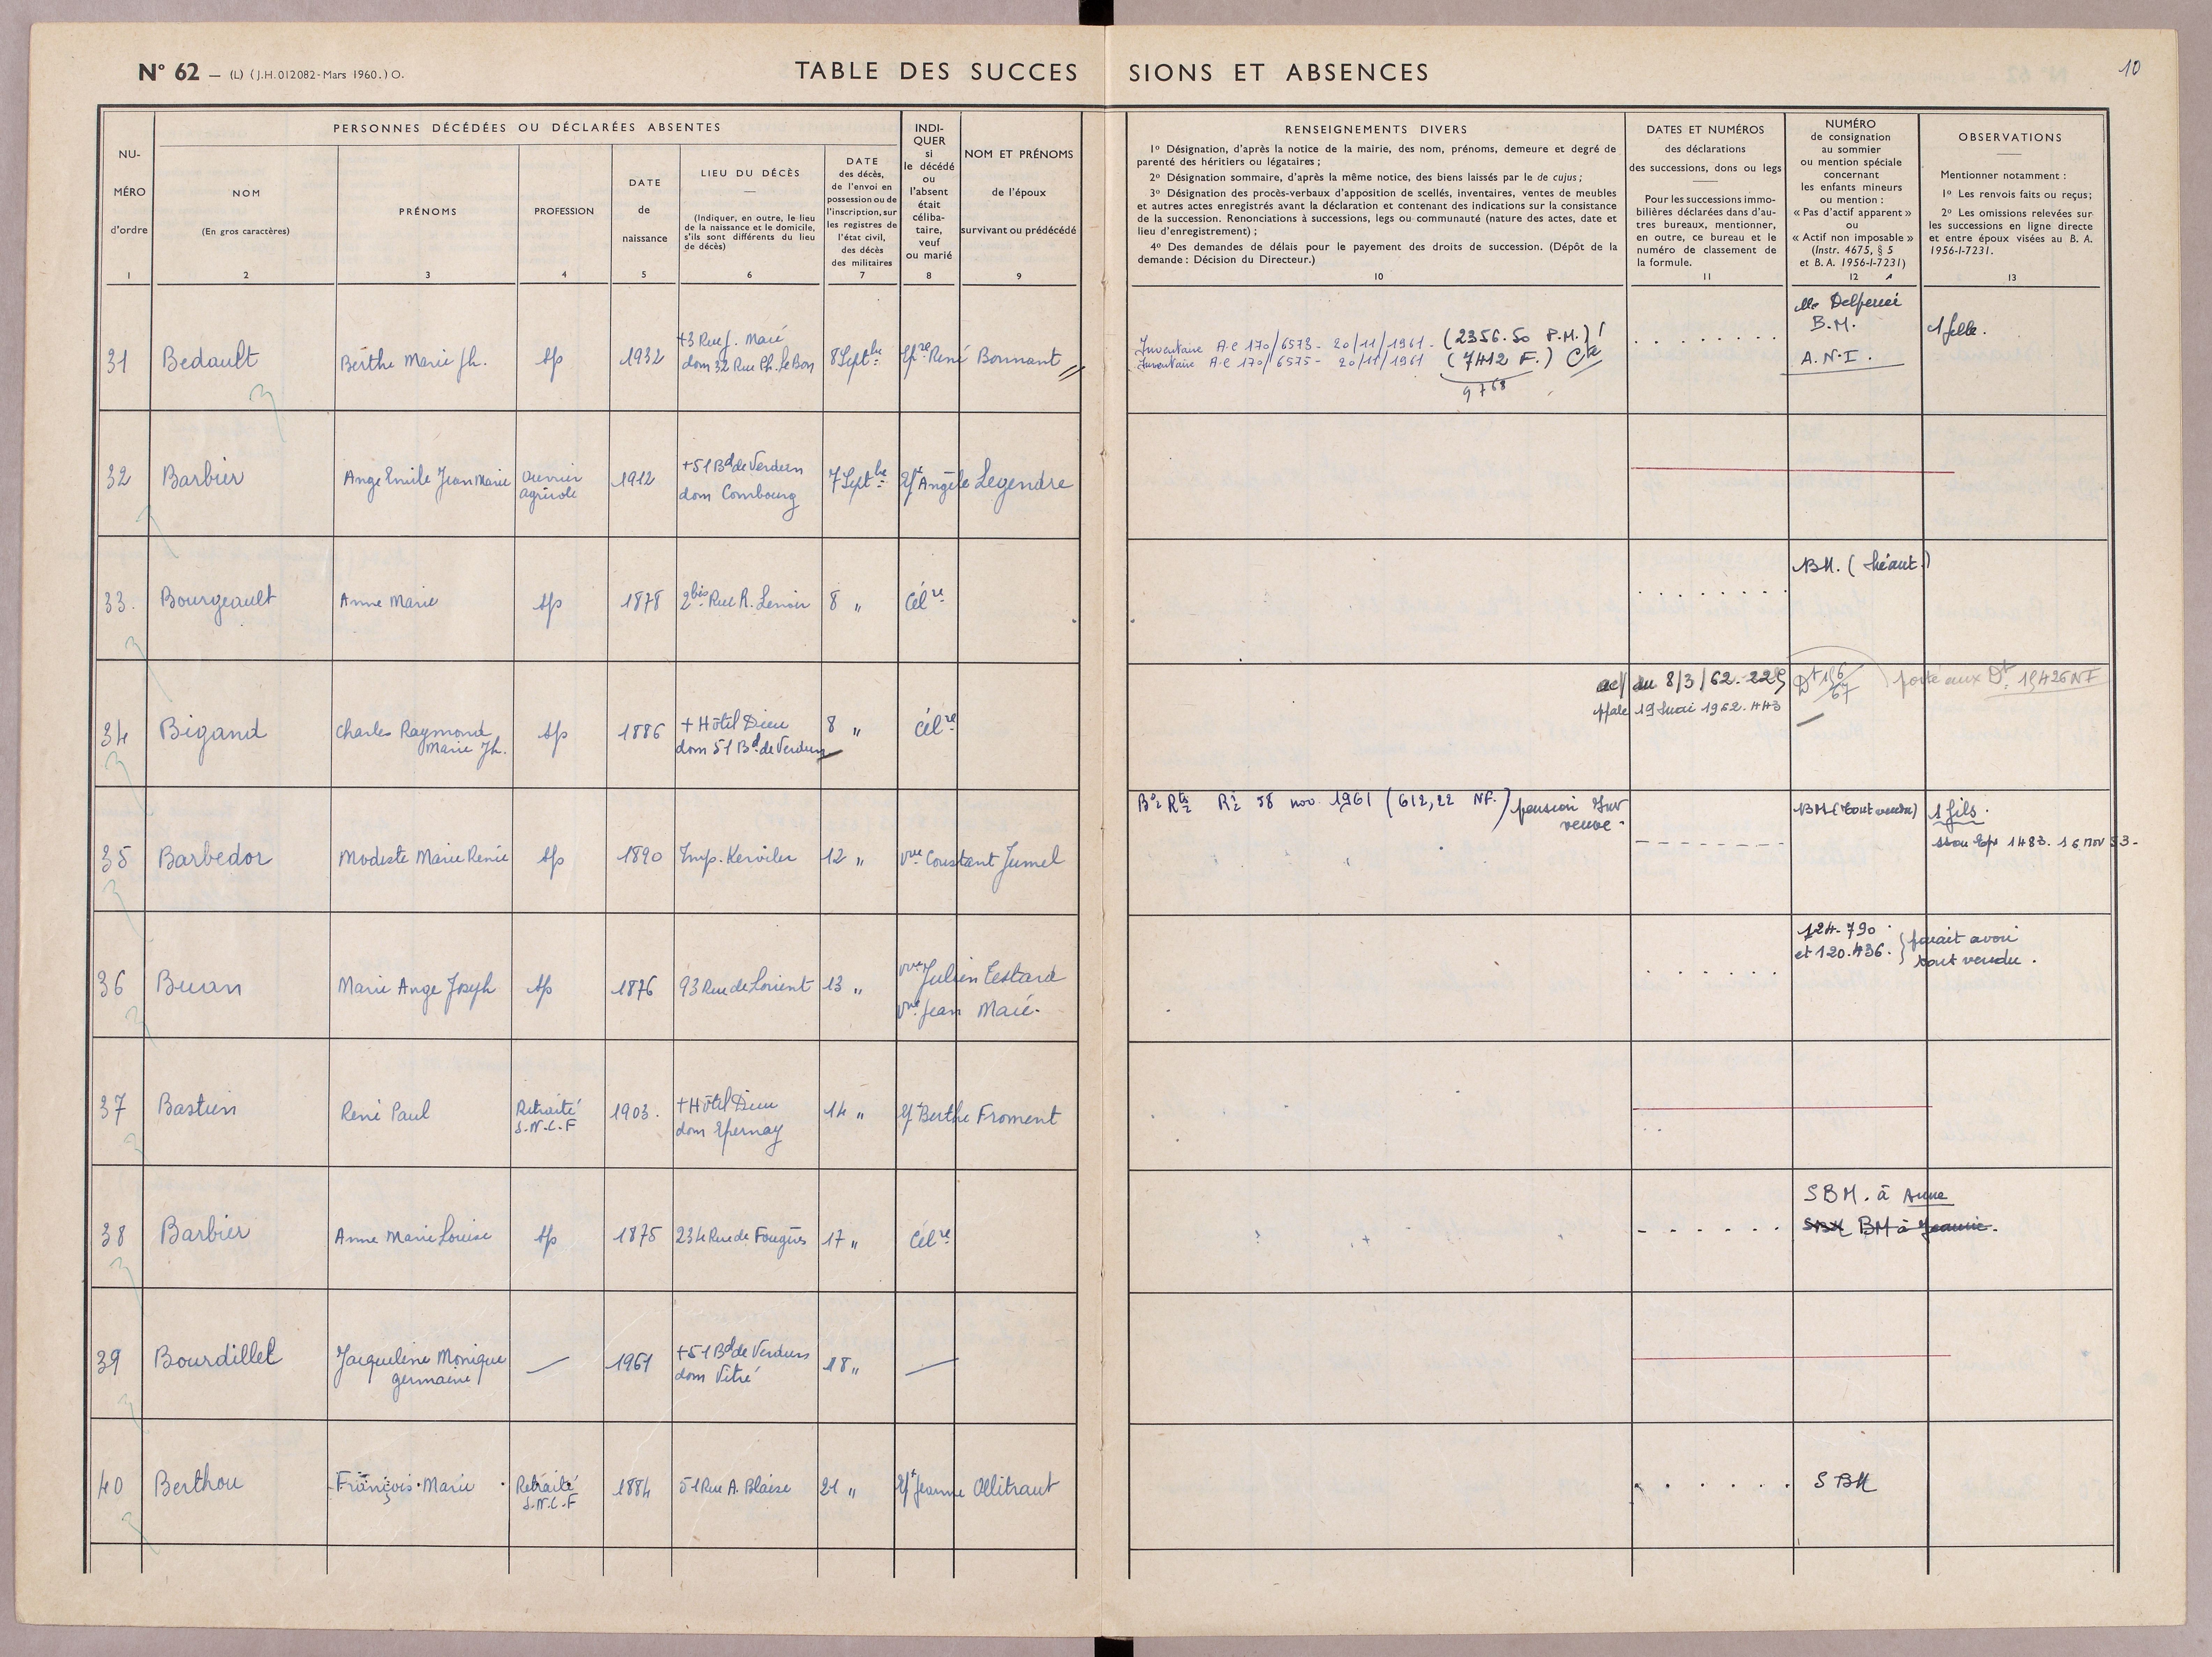 N° 62 — (L) (J.H. 012082 - Mars 1960.) O.
TABLE DES SUCCES SIONS ET ABSENCES
10
NU-
MÉRO
d'ordre
1
PERSONNES DÉCÉDÉES OU DÉCLARÉES ABSENTES
NOM
(En gros caractères)
2
PRÉNOMS
3
PROFESSION
4
DATE
de
naissance
5
LIEU DU DÉCÈS
(Indiquer, en outre, le lieu
de la naissance et le domicile,
s'ils sont différents du lieu
de décès)
6
DATE
des décès,
de l'envoi en
possession ou de
l'inscription, sur
les registres de
l'état civil,
des décès
des militaires
7
INDI-
QUER
si
le décédé
ou
l'absent
était
céliba-
taire,
veuf
ou marié
8
NOM ET PRÉNOMS
de l'époux
survivant ou prédécédé
9
RENSEIGNEMENTS DIVERS
1° Désignation, d'après la notice de la mairie, des nom, prénoms, demeure et degré de
parenté des héritiers ou légataires ;
2° Désignation sommaire, d'après la même notice, des biens laissés par le de cujus ;
3° Désignation des procès-verbaux d'apposition de scellés, inventaires, ventes de meubles
et autres actes enregistrés avant la déclaration et contenant des indications sur la consistance
de la succession. Renonciations à successions, legs ou communauté (nature des actes, date et
lieu d'enregistrement) ;
4° Des demandes de délais pour le payement des droits de succession. (Dépôt de la
demande : Décision du Directeur.)
10
DATES ET NUMÉROS
des déclarations
des successions, dons ou legs
Pour les successions immo-
bilières déclarées dans d'au-
tres bureaux, mentionner,
en outre, ce bureau et le
numéro de classement de
la formule.
11
NUMÉRO
de consignation
au sommier
ou mention spéciale
concernant
les enfants mineurs
ou mention :
« Pas d'actif apparent »
ou
« Actif non imposable »
(Instr. 4675, § 5
et B. A. 1956-I-7231)
12
OBSERVATIONS
Mentionner notamment :
1° Les renvois faits ou reçus ;
2° Les omissions relevées sur
les successions en ligne directe
et entre époux visées au B. A.
1956-I-7231.
13
31 Bedault Berthe Marie Jh. Sp 1932
+3 Rue J. Macé
dom 32 Rue Ph. le Bon
8 Septbre Epse René Bonnant
Inventaire A.C 170/6573 - 20/11/1961 - (2356.50 P.M.)
Inventaire A.C 170/6575 - 20/11/1961 (7412 F.)
9768
B.M.
A.N.I.
1 fille.
32 Barbier Ange Emile Jean Marie
Ouvrier
agricole
1912
+51 Bd de Verdun
dom Combourg
7 Septbre Ex Angèle Legendre
33. Bourgeault Anne Marie Sp 1878 2bis Rue R. Lenoir 8 " Célre
BM. (Néant.)
34 Bigand
Charles Raymond
Marie Jh.
Sp 1886
+ Hôtel Dieu
dom 51 Bd de Verdun
8 " Célre
du 8/3/62. 229
19 Juin 1962. 443
Dt 196/67
porté aux Dt. 19426 NF
35 Barbedor Modeste Marie Renée Sp 1890 Imp. Kerviler 12 " Vve Constant Jumel
58 nov. 1961 (612,22 NF.) pension
veuve -
BM (tout vendu)
1 fils.
1483. 16 nov 53 -
36 Buan Marie Ange Joseph Sp 1876 93 Rue de Lorient 13 "
vve Julien Testard
vve Jean Macé.
124-790
et 120.436.
parait avoir
tout vendu.
37 Bastien René Paul
Retraité
S.N.C.F
1903.
+ Hôtel Dieu
dom Epernay
14 " Ex Berthe Froment
38 Barbier Anne Marie Louise Sp 1875 234 Rue de Fougères 17 " Célre
SBM. à Anne
SBM BM à Jeanne.
39 Bourdillel
Jacqueline Monique
Germaine
— 1961
+51 Bd de Verdun
dom Vitré
18 " —
40 Berthou François Marie
Retraité
S.N.C.F
1884 51 Rue A. Blaise 21 " Ex Jeanne Ollitraut
SBM